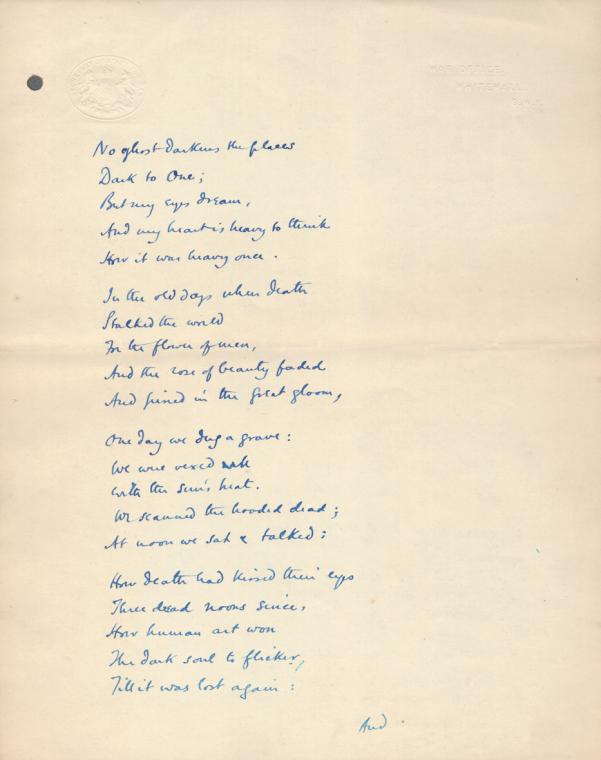 WAR OFFICE,
WHITEHALL,
S.W.1.
No ghost darkens the places
Dark to One;
But my eyes dream,
And my heart is heavy to think
How it was heavy once.
In the old days when death
Stalked the world
For the flower of men,
And the rose of beauty faded
And pined in the great gloom,
One day we dug a grave:
We were vexed
with the sun's heat.
We scanned the hooded dead;
At noon we sat & talked:
How death had kissed their eyes
Three dread noons since,
How human art won
The dark soul to flicker,
Till it was lost again:
And